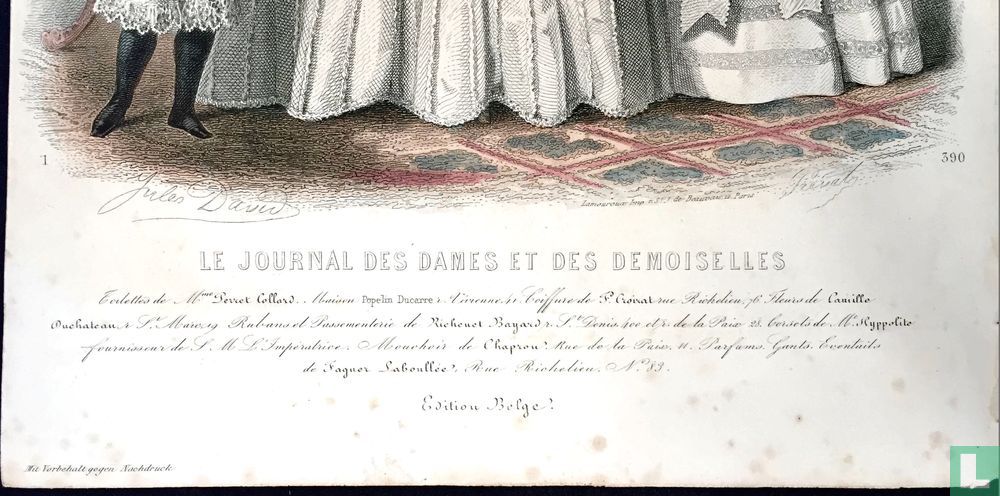 1 390
Jules David
Lamouroux Imp. r. St J. de Beauvais, Paris
LE JOURNAL DES DAMES ET DES DEMOISELLES
Toilettes de Mme Perret Collard. Maison Popelin Ducarre r. Vivienne, 41 Coiffure de P. Croizat rue Richelieu, 76 Fleurs de Camille
Duchateau, r St Marc, 19 Rubans et Passementerie de Richenet Bayard r St Denis, 400 et r. de la Paix 23. Corsets de Me Hyppolite
fournisseur de S. M. L'Impératrice. Mouchoir de Chapron Rue de la Paix, 11. Parfums. Gants. Eventails
de Faguer Laboullée, Rue Richelieu, No 83.
Edition Belge
Mit Vorbehalt gegen Nachdruck
L